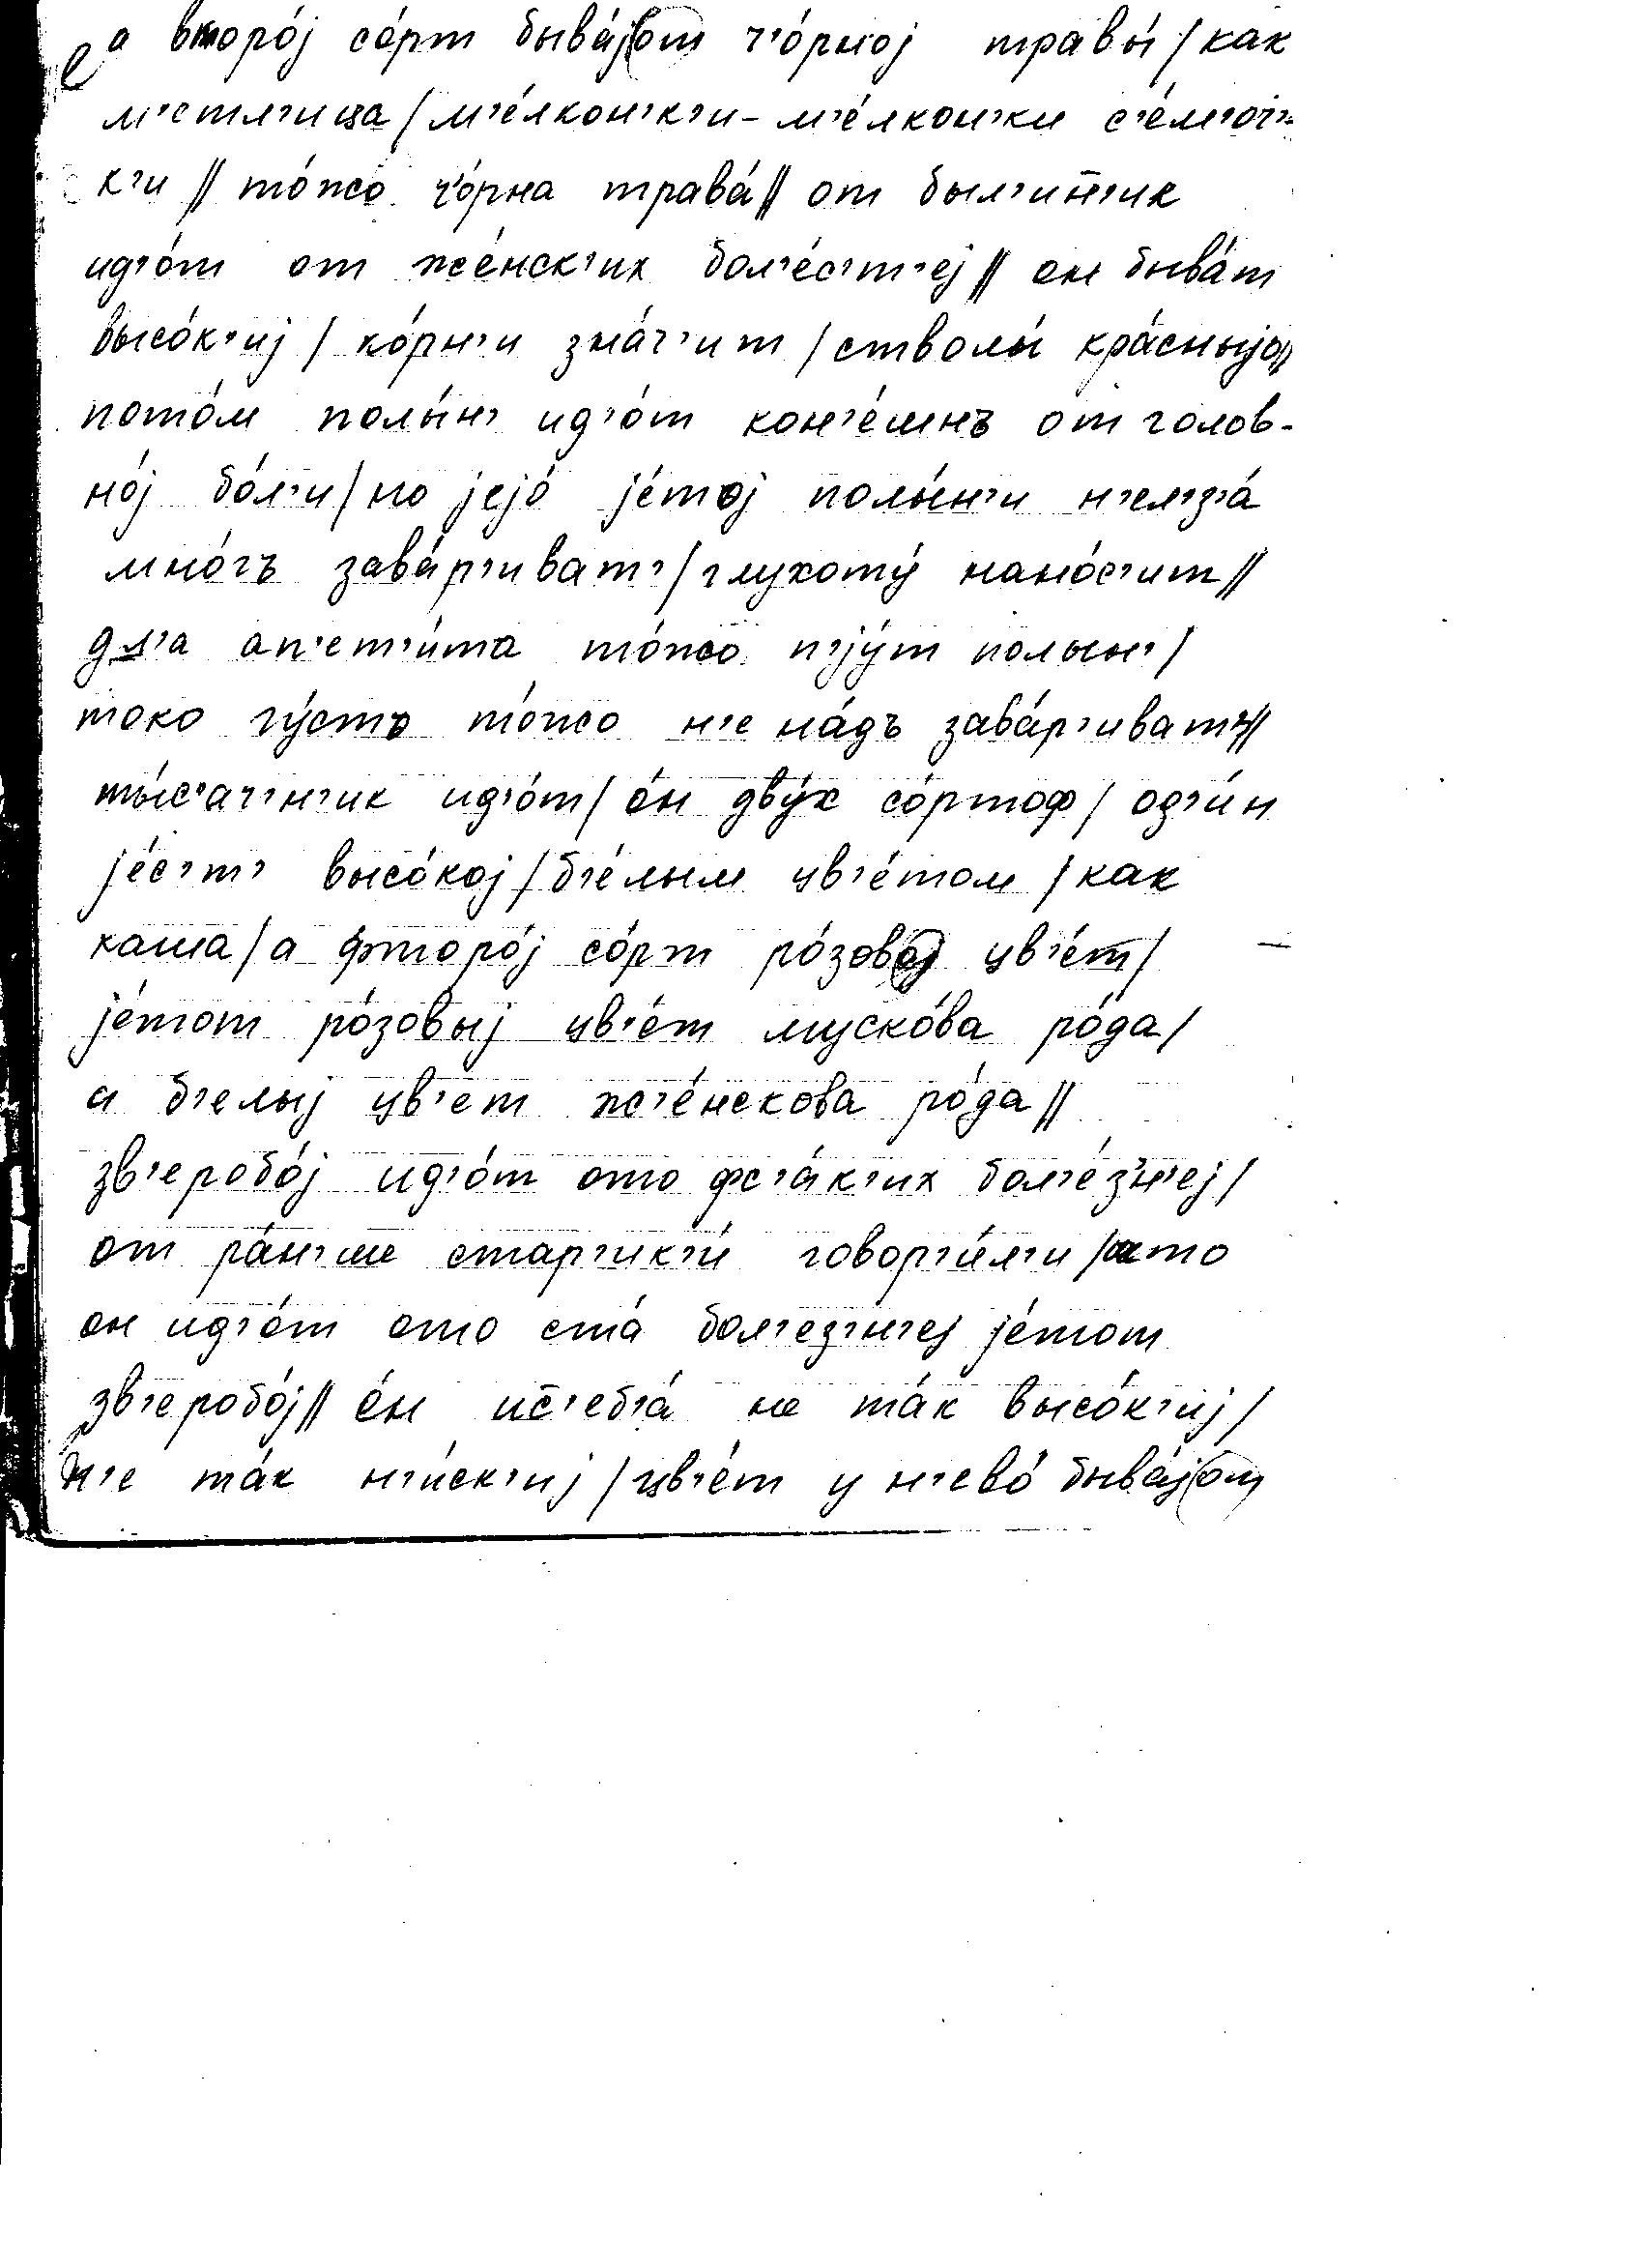 а второ́ј со́рт быва́јот ч’о́рној травы́ / как
м’етл’ица / м’е́лкон’к’и - м’е́лкон’ки с’е́м’оч’-
к’и // то́жо ч’о́рна трава́ // от был’ин’ик
ид’о́т от же́нск’их бол’е́с’т’еј // он быва́т
высо́к’иј / ко́рн’и зна́ч’ит / стволы́ кра́сныјо //
пото́м полы́н’ ид’о́т кон’е́шнъ от голов-
но́ј бо́л’и / но јејо́ је́тој полы́н’и н’ел’з’а́
мно́гъ зава́р’иват’ / глухоту́ нано́с’ит //
дл’а ап’ет’и́та то́жо п’јут полын’ /
токо гу́сто то́жо н’е на́дъ зава́р’иват’ //
ты́с’ач’н’ик ид’о́т / о́н дву́х со́ртоф / од’и́н
је́с’т’ высо́кој / б’е́лым цв’е́том / как
каша / а фторо́ј со́рт ро́зовој цв’е́т /
је́тот ро́зовыј цв’е́т муско́ва ро́да /
а б’елыј цв’ет ж’е́нскова ро́да //
зв’еробо́ј ид’о́т ото фс’а́к’их бол’е́з’н’еј /
от ра́н’ше стар’ик’и́ говор’и́л’и / што
он ид’о́т ото ста́ бол’ез’н’еј је́тот
зв’еробо́ј // о́н ис’еб’а́ не та́к высо́к’иј /
н’е та́к н’и́ск’иј / цв’е́т у н’ево́ быва́јот